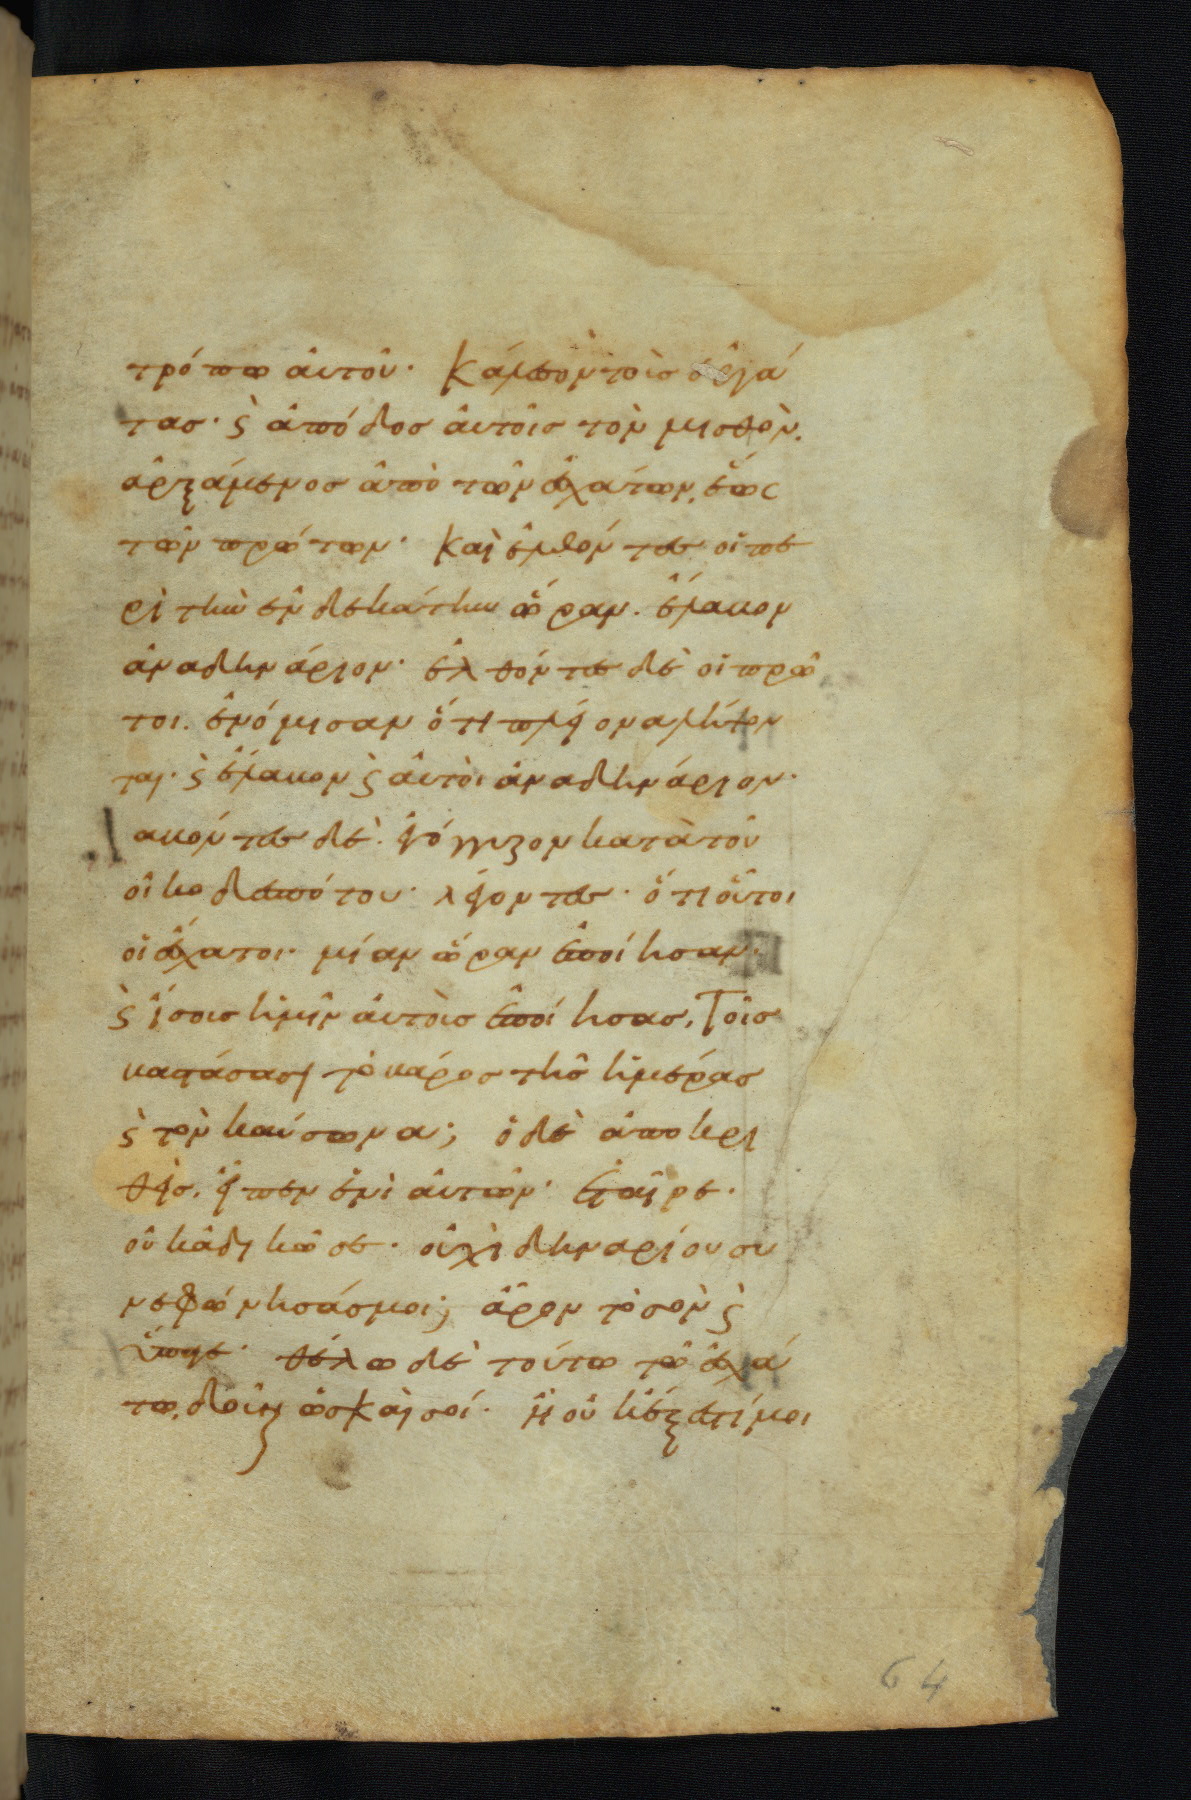 τρόπω αὐτοῦ· Κάλεσον τοὺσ ἐργά
τασ· ϗ ἀπόδοσ αὐτοῖσ τὸν μισθὸν.
ἀρξάμενοσ ἀπὸ τῶν ἐσχάτων, ἕως
τῶν πρώτων· Καὶ ἐλθόντεσ οἱ πε
ρὶ τὴν ἐνδεκάτην ὥραν. ἔλαβον
ἀναδηνάριον· ἐλθόντεσ δὲ οἱ πρῶ
τοι. ἐνόμισαν ὅτι πλείονα λήψον
ται· ϗ ἔλαβον ϗ αὐτοὶ ἀναδηνάριον·
λαβόντεσ δὲ. ἐγόγγυζον κατὰ τοῦ
οἰκοδεσπότου· λέγοντεσ· ὅτι οὗτοι
οἱ ἔσχατοι· μίαν ὥραν ἐποίησαν·
ϗ ἴσουσ ἡμῖν αὐτοὺσ ἐποίησασ, Τοῖσ
βαστάσασι τὸ βάροσ τῆσ ἡμέρασ
ϗ τὸν καύσωνα; ὁ δὲ ἀποκρι
θεὶσ. εἶπεν ἑνὶ αὐτῶν· ἑταῖρε·
οὐκ ἀδικῶ σε· οὐχὶ δηναρίου συ
νεφώνησάσ μοι; ἆρον τὸ σὸν ϗ
ὕπαγε· θέλω δὲ τούτω τῶ ἐσχά
τω, δοῦναι ὡσ Καὶ σοί· ἢ οὐκ ἔξεστί μοι
64